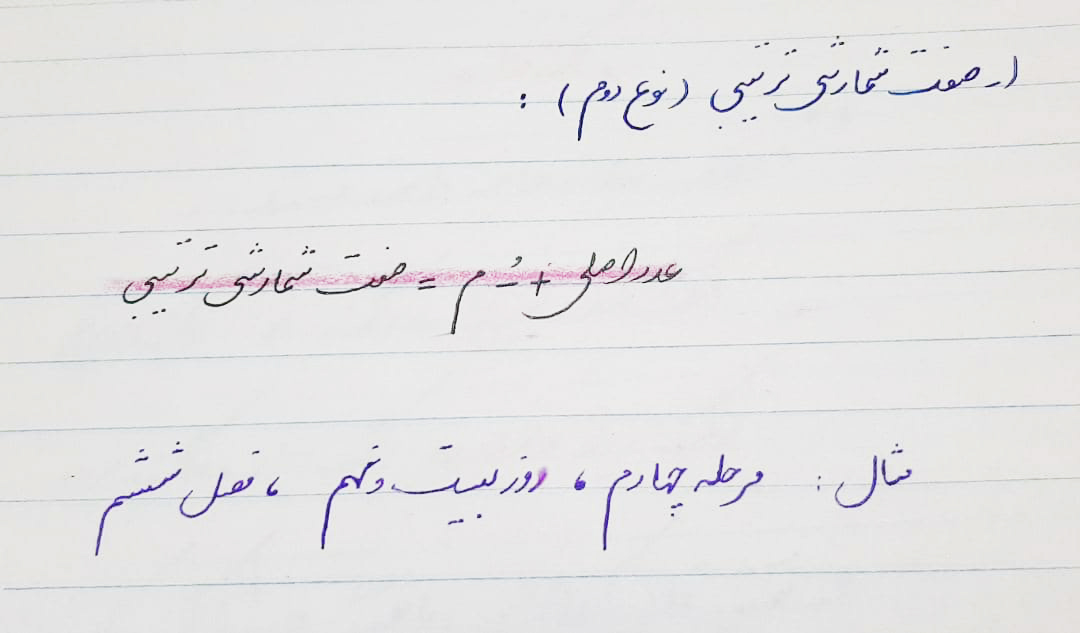 ۱ـ صفت شمارشی ترتیبی (نوع دوم) :
عدد اصلی + ـُ م = صفت شمارشی ترتیبی
مثال : مرحله چهارم ، روز بیست ونهم ، فصل ششم